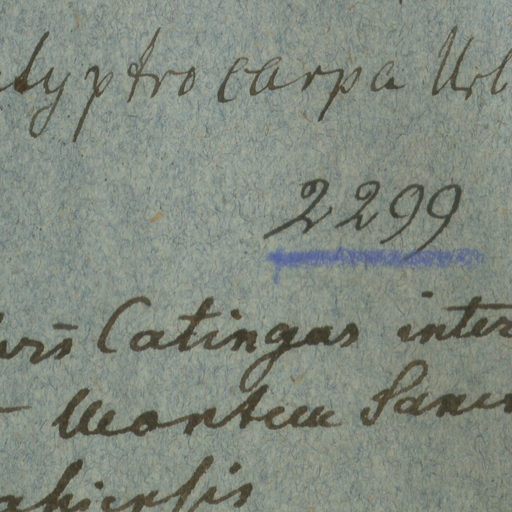 alyptrocarpa Url
2299
Catingas inter
Montem Sanc
ahiensis